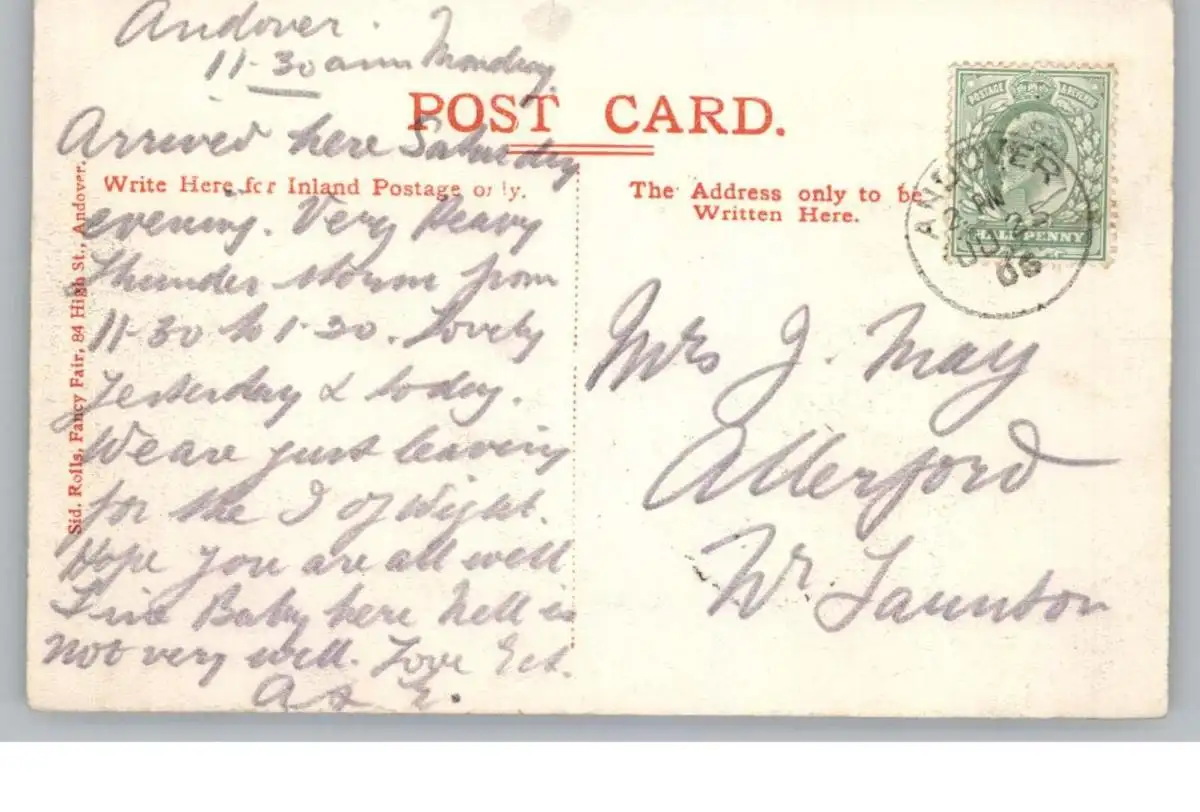 Andover.
11-30 am Monday.
POST CARD.
Arrived here Saturday
Write Here for Inland Postage only.
evening. Very heavy
thunder storm from
11-30 to 1-30. Lovely
yesterday & today.
We are just leaving
for the I of Wight.
Hope you are all well
Fine Baby here Nell is
not very well. Love Ect.
A & E.
Sid. Rolls, Fancy Fair, 84 High St., Andover.
The Address only to be
Written Here.
POSTAGE & REVENUE
HALFPENNY
ANDOVER
22
08
Mrs J. May
Allerford
Nr. Taunton